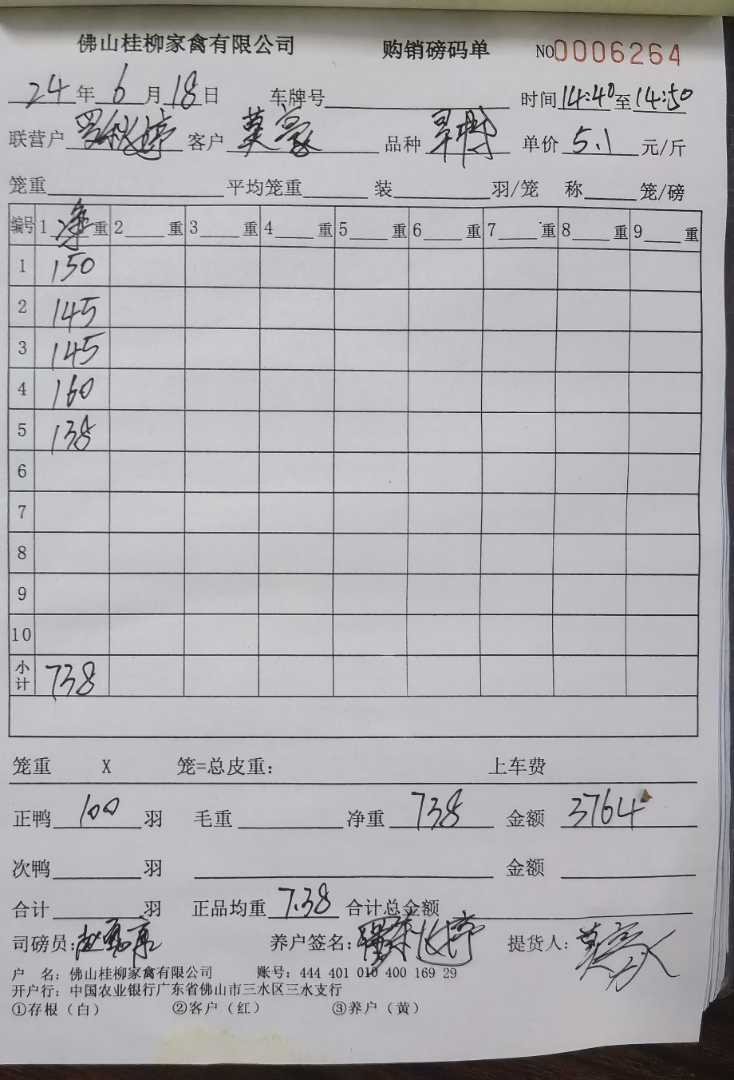 佛山桂柳家禽有限公司 购销磅码单 NO0006264
24年6月18日 车牌号 时间14:40至14:50
联营户 客户 莫豪 品种 单价 5.1 元/斤
笼重 平均笼重 装 羽/笼 称 笼/磅
编号 1 净 重 2 重 3 重 4 重 5 重 6 重 7 重 8 重 9 重
1 150
2 145
3 145
4 160
5 138
6
7
8
9
10
小计 738
笼重 X 笼=总皮重: 上车费
正鸭 100 羽 毛重 净重 738 金额 3764
次鸭 羽 金额
合计 羽 正品均重 7.38 合计总金额
司磅员: 养户签名: 提货人:
户 名: 佛山桂柳家禽有限公司 账号: 444 401 010 400 169 29
开户行: 中国农业银行广东省佛山市三水区三水支行
①存根(白) ②客户(红) ③养户(黄)